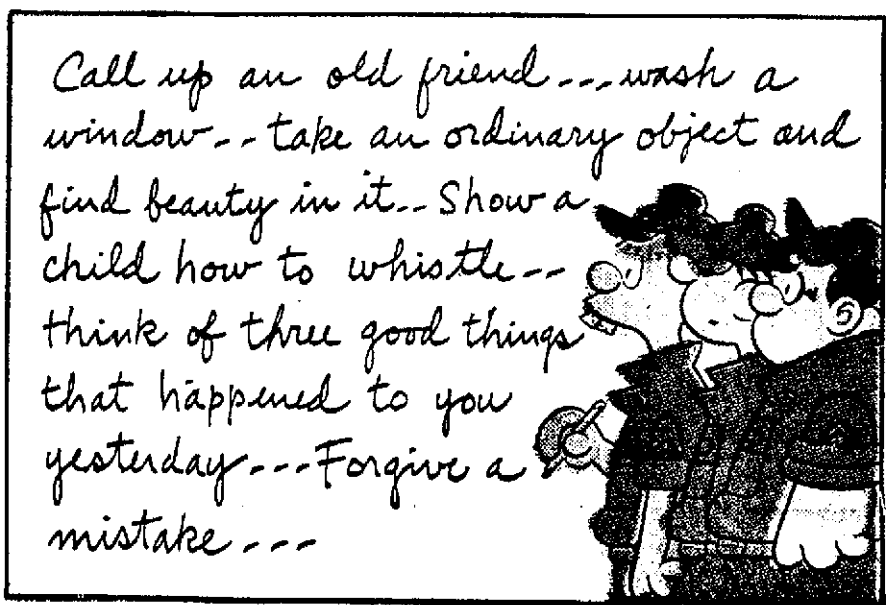 Call up an old friend---wash a
window--take an ordinary object and
find beauty in it--Show a
child how to whistle--
think of three good things
that happened to you
yesterday---Forgive a
mistake---